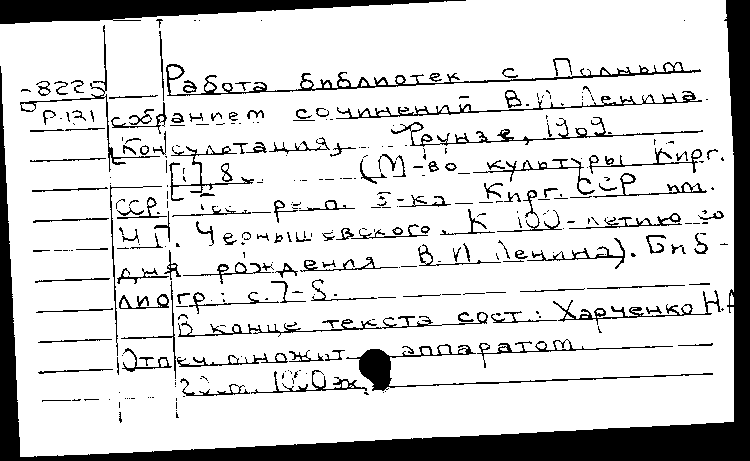 -8225 Работа библиотек с Полным
Р.121 собранием сочинений В.И. Ленина.
[Консультация, Фрунзе, 1969.
[1], 8 с. (М-во культуры Кирг.
ССР. Гос. респ. б-ка Кирг. ССР им.
Н Г. Чернышевского. К 100-летию со
дня рождения В.И. Ленина). Биб-
лиогр.: с. 7-8.
В конце текста сост.: Харченко Н.А
Отпеч. множит. аппаратом.
20 см. 1000 эк.